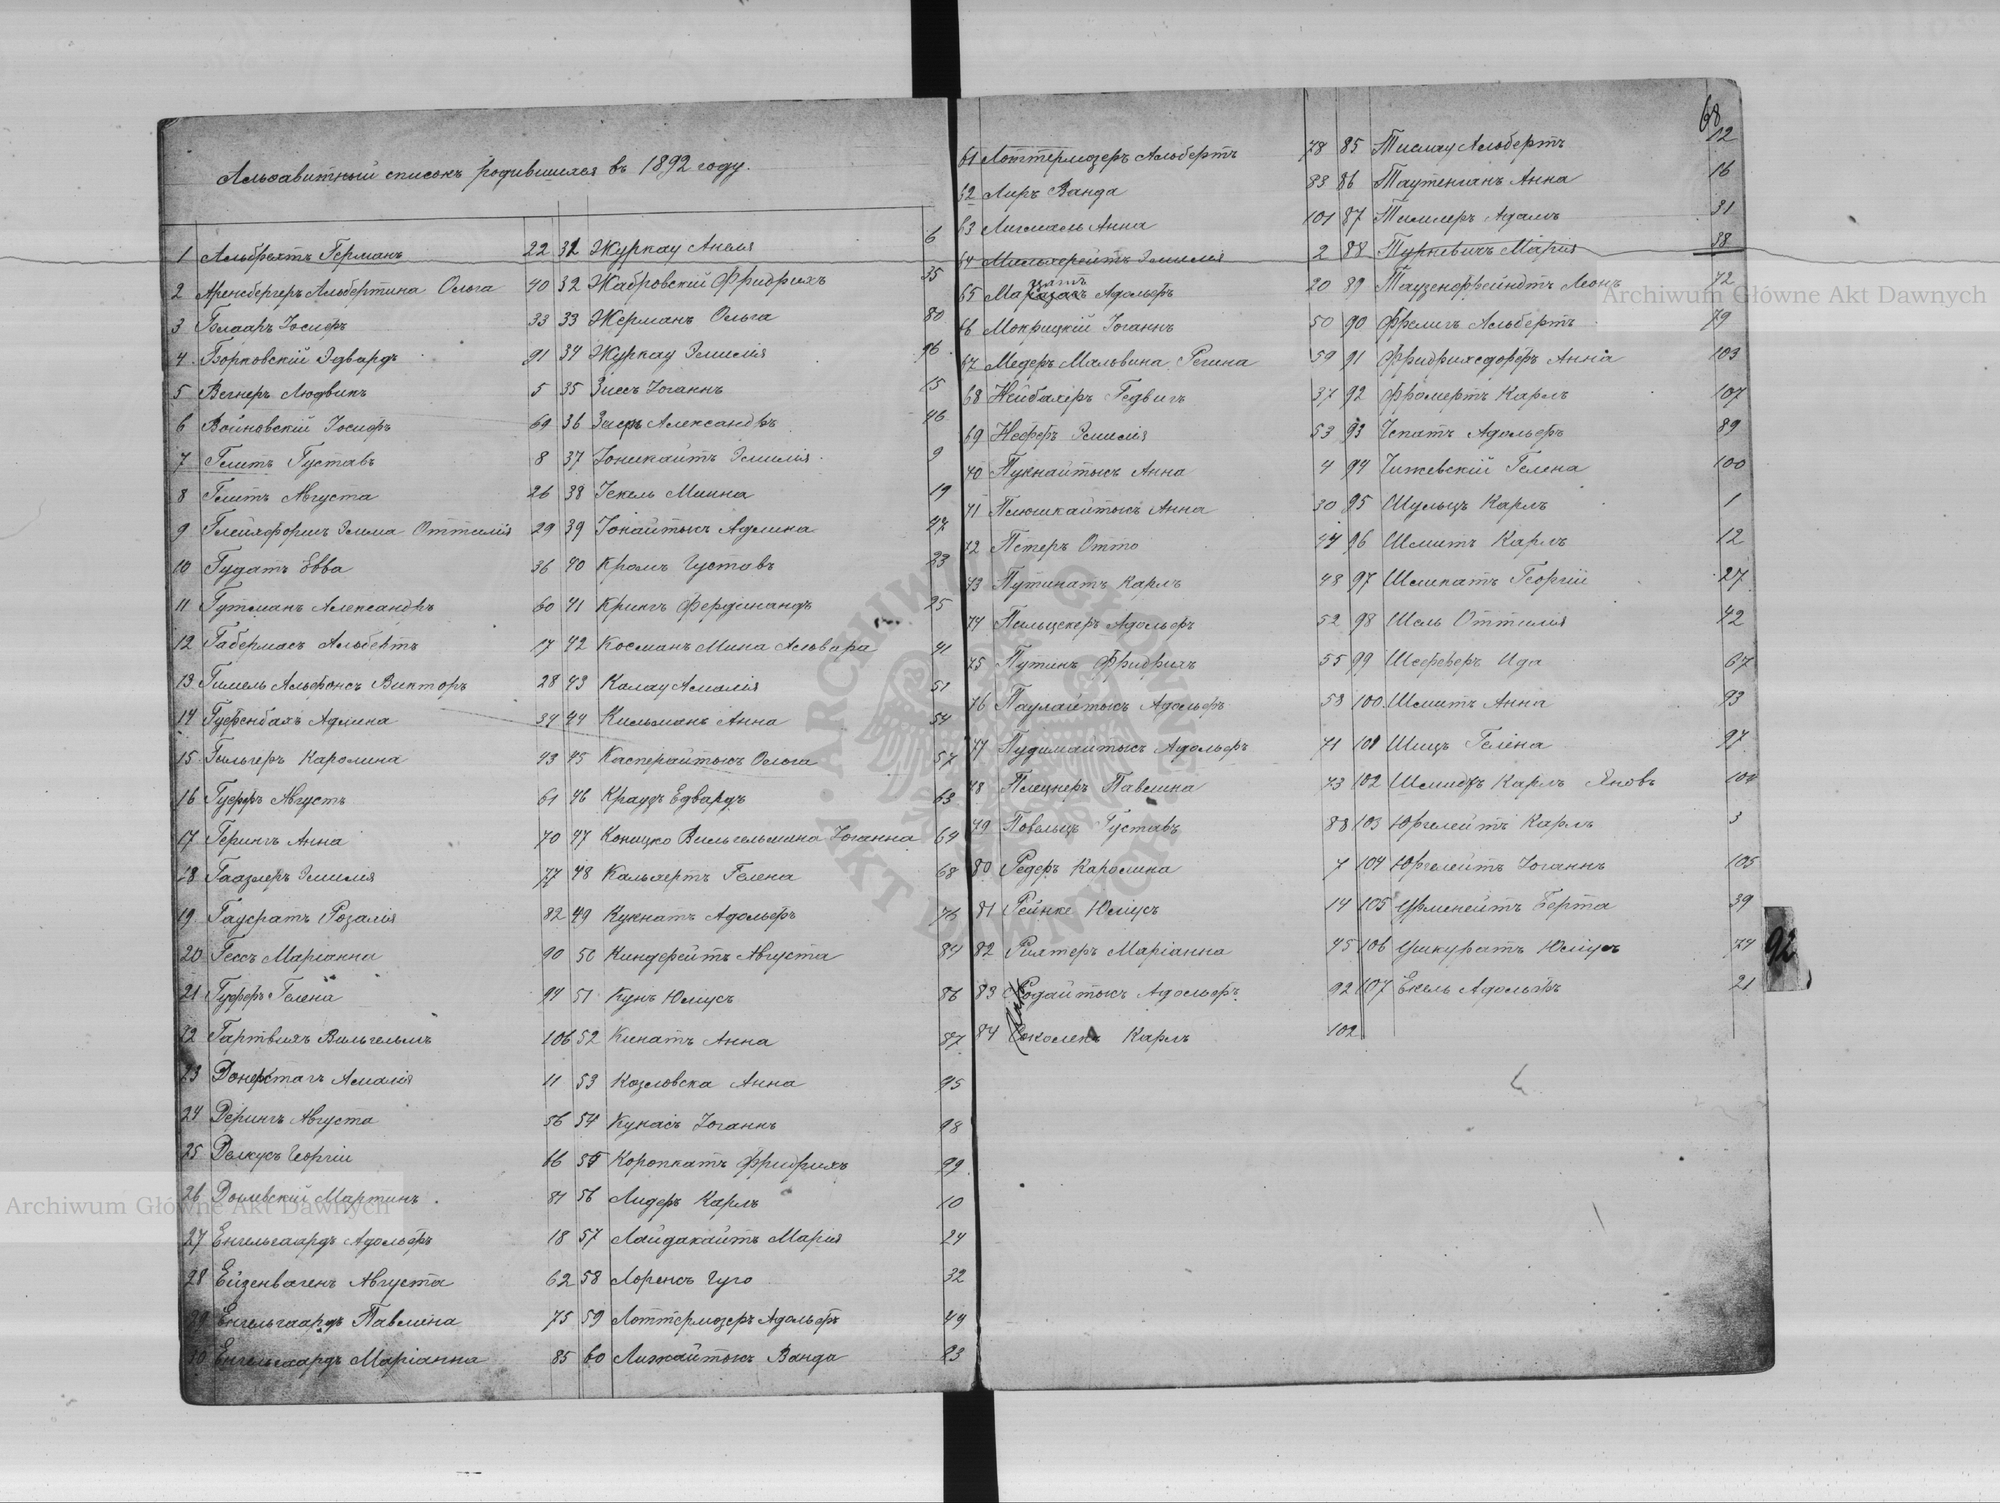 68
Алфавитный списокъ родившихся въ 1892 году.
1 Альбрехтъ Германъ 22
2 Аренсбергеръ Альбертина Ольга 40
3 Блааръ Іосифъ 33
4 Борковскій Эдвардъ 91
5 Вегнеръ Людвикъ 5
6 Войновскій Іосифъ 69
7 Гемтъ Густавъ 8
8 Августа 26
9 Эмма Оттилія 29
10 Гудатъ Евва 36
11 Гутманъ Александръ 60
12 Габермасъ Альбертъ 17
13 Гимель Альфонсъ Викторъ 28
14 Гуфенбахъ Адлина 34
15 Гильгеръ Каролина 43
16 Гуффъ Августъ 61
17 Герингъ Анна 70
18 Гаазлеръ Эмилія 77
19 Гаусратъ Розалія 82
20 Гессъ Маріанна 90
21 Гуферъ Гелена 94
22 Гартвихъ Вильгельмъ 106
23 Донерстагъ Амалія 11
24 Дерингъ Августа 56
25 Делкусъ Георгій 66
26 Мартинъ 81
27 Енгельгаардъ Адольфъ 18
28 Ейзенвагенъ Августа 62
29 Енгельгаардъ Павлина 75
30 Енгельгаардъ Маріанна 85
31 Журкау Анеля 6
32 Жабровскій Фридрихъ 35
33 Жерманъ Ольга 80
34 Журкау Эмилія 96
35 Зиссъ Іоганнъ 15
36 Александръ 46
37 Іоникайтъ Эмилія 9
38 Іекель Минна 19
39 Іонайтысъ Адлина 47
40 Кромъ Густавъ 23
41 Крингъ Фердинандъ 25
42 Косманъ Мина Альвара 41
43 Калау Амалія 51
44 Кильманъ Анна 54
45 Касперайтысъ Ольга 57
46 Краузъ Едвардъ 63
47 Коницко Вильгельмина Іоганна 64
48 Кальхертъ Гелена 68
49 Кукнатъ Адольфъ 76
50 Киндерейтъ Августа 84
51 Кунъ Юліусъ 86
52 Кинатъ Анна 87
53 Козловска Анна 95
54 Кукасъ Іоганнъ 98
55 Коропкатъ Фридрихъ 99
56 Лидеръ Карлъ 10
57 Лайдакайтъ Марія 24
58 Лоренсъ Гуго 32
59 Лоттермозеръ Адольфъ 44
60 Лижайтысъ Ванда 23
61 Лоттермозеръ Альбертъ 78
62 Лиръ Ванда 83
63 Лигмаль Анна 101
64 Мильхерейтъ Эмилія 2
65 Адольфъ 20
66 Мокрицкій Іоганнъ 50
67 Медеръ Мальвина Регина 59
68 Нейбахеръ Гедвигъ 37
69 Неффъ Эмилія 53
70 Пукнайтысъ Анна 4
71 Плюшкайтысъ Анна 30
72 Петеръ Отто 14
73 Путинатъ Карлъ 48
74 Пильцекеръ Адольфъ 52
75 Путинъ Фридрихъ 55
76 Паулайтысъ Адольфъ 58
77 Пудимайтысъ Адольфъ 71
78 Плецнеръ Павлина 73
79 Повельцъ Густавъ 88
80 Редеръ Каролина 7
81 Рейнке Юліусъ 14
82 Рихтеръ Маріанна 45
83 Адольфъ 92
84 Карлъ 102
85 Тислау Альбертъ 12
86 Таутенганъ Анна 16
87 Тимлеръ Адамъ 31
88 Туркевичъ Марія 38
89 Таузенфрейндтъ Леонъ 72
90 Фрелигъ Альбертъ 79
91 Фридрихсдорфъ Анна 103
92 Фромертъ Карлъ 107
93 Чепатъ Адольфъ 89
94 Чижевскій Гелена 100
95 Шульцъ Карлъ 1
96 Шмитъ Карлъ 12
97 Шимкатъ Георгій 27
98 Шель Оттилія 42
99 Шефферъ Ида 67
100 Шмитъ Анна 93
101 Шицъ Гелена 97
102 Шмидтъ Карлъ Яновъ 104
103 Юргелейтъ Карлъ 3
104 Юргелейтъ Іоганнъ 105
105 Берта 39
106 Ушкуратъ Юліусъ 74
107 Екель Адольфъ 21
92
Archiwum Główne Akt Dawnych
Archiwum Główne Akt Dawnych